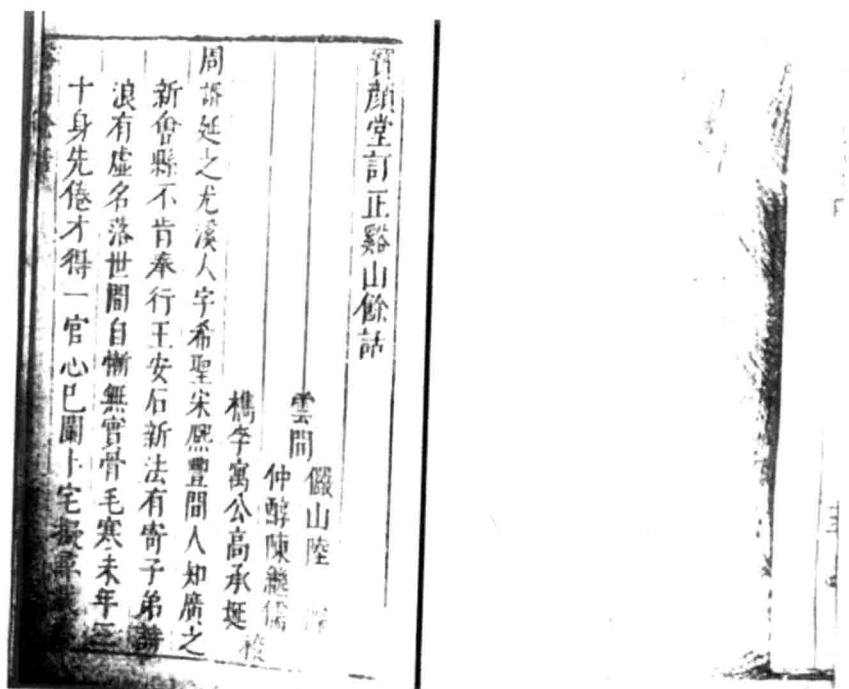 寶顏堂訂正谿山餘話
雲間
儼山陸 深
仲醇陳繼儒
檇李寓公高承埏 校
周諝延之尤溪人字希聖宋熈豐間人知廣之
新會縣不肯奉行王安石新法有寄子弟詩
浪有虛名落世間自慚無實骨毛寒未年三
十身先倦才得一官心已闌卜宅擬尋